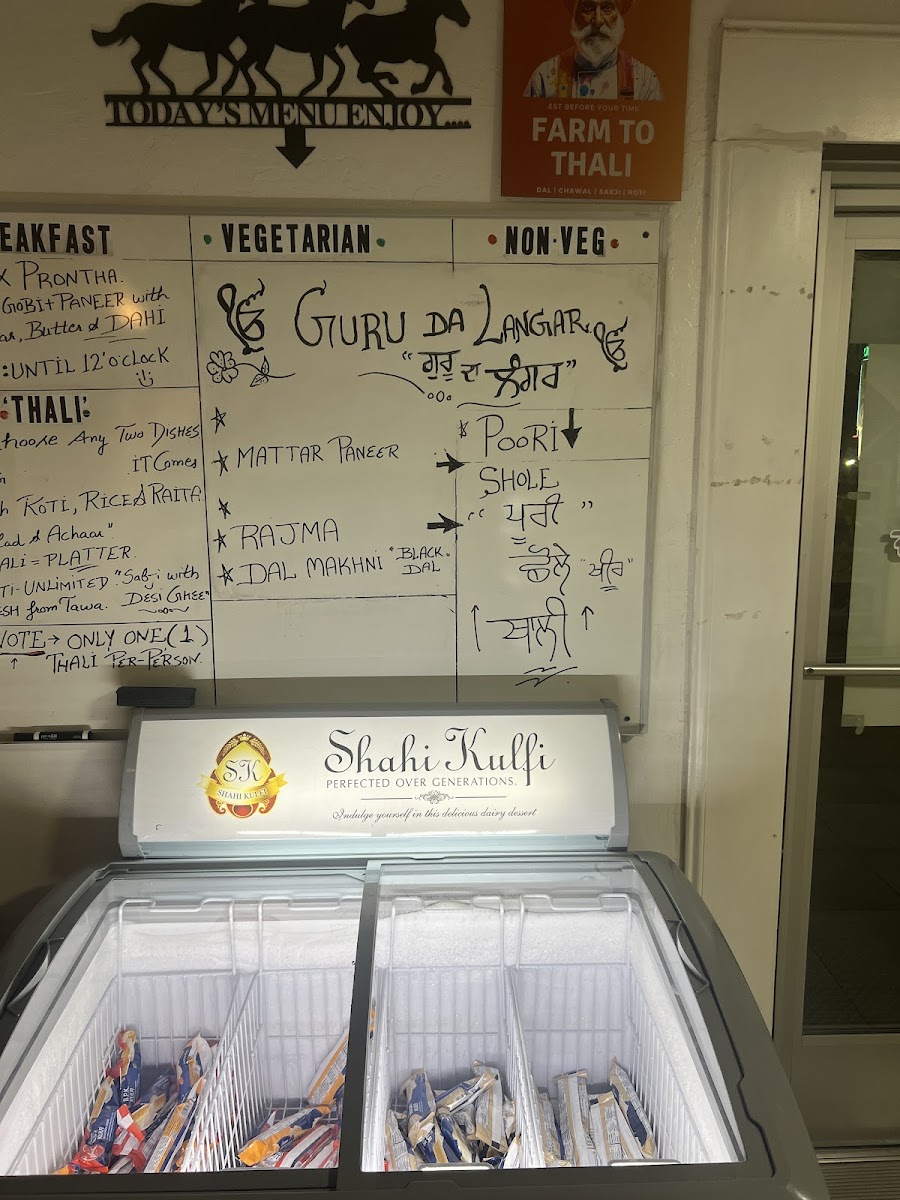 TODAY'S MENU ENJOY....
EST BEFORE YOUR TIME
FARM TO
THALI
DAL | CHAWAL | SABJI | ROTI
EAKFAST
PRONTHA.
GOBI + PANEER with
Butter & DAHI
:UNTIL 12'o'clock
'THALI'
hoose Any Two Dishes
IT Comes
ROTI, RICE & RAITA
& Achaar"
ALI = PLATTER.
TI-UNLIMITED "Sabji with
ESH from Tawa. DESI GHEE"
NOTE → ONLY ONE (1)
THALI PER-PERSON.
• VEGETARIAN •
• NON·VEG •
ੴ GURU DA LANGAR ੴ
"ਗੁਰੂ ਦਾ ਲੰਗਰ"
MATTAR PANEER
RAJMA
DAL MAKHNI "BLACK"
DAL
POORI
SHOLE
"ਪੂਰੀ"
ਛੋਲੇ "ਖੀਰ"
ਥਾਲੀ
SK
SHAHI KULFI
Shahi Kulfi
PERFECTED OVER GENERATIONS.
Indulge yourself in this delicious dairy dessert